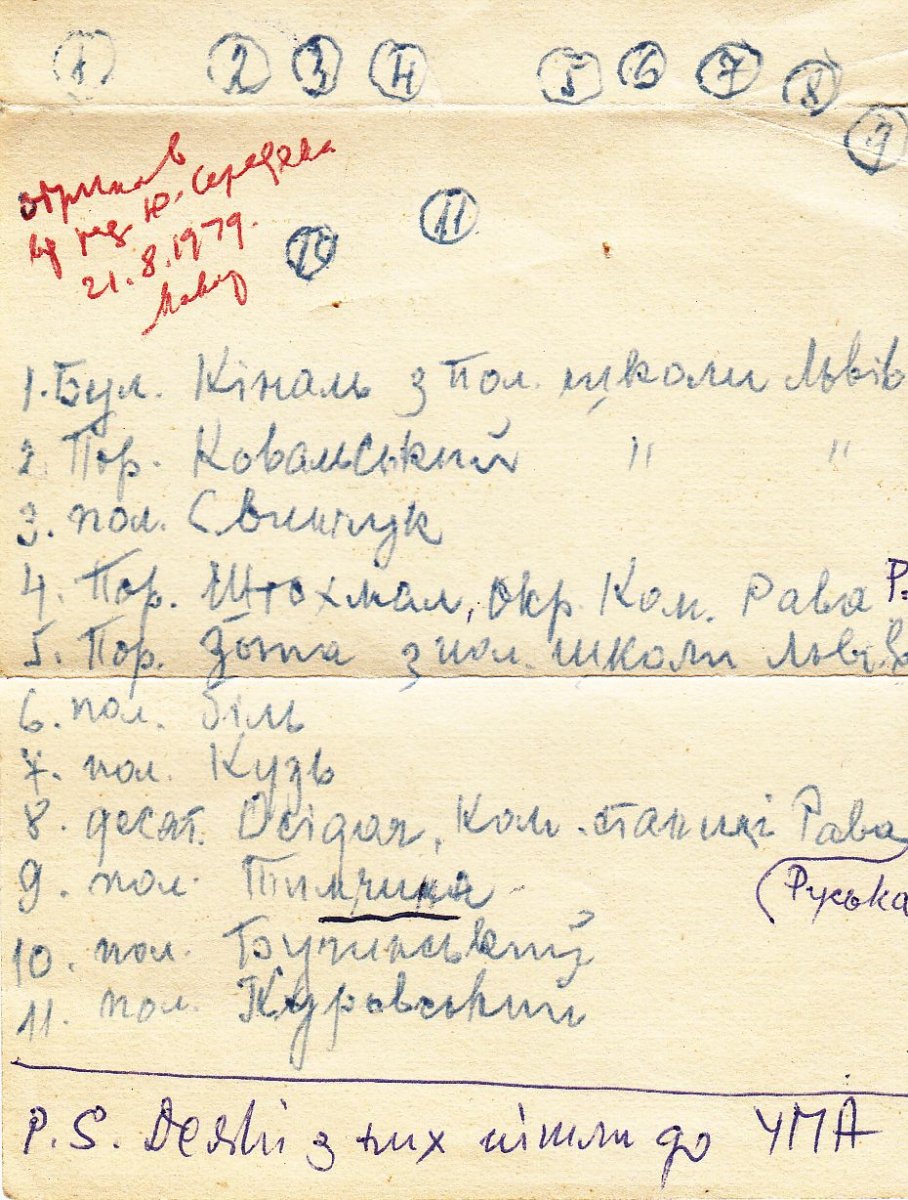 1 2 3 4 5 6 7 8 9
отримав
від ред. Ю. Середяка
21.8.1979.
10 11
1. Бул. Кіналь з Пол. школи Львів
2. Пор. Ковальський " "
3. пол. Свинчук
4. Пор. Штохмал, Окр. Ком. Рава Р.
5. Пор. з пол. школи Львів
6. пол. Біль
7. пол. Кузь
8. десят. Осідач, Ком. станиці Рава
(Руська
9. пол. Тимчина
10. пол. Бучинський
11. пол. Куровський
P.S. Деякі з них пішли до УПА